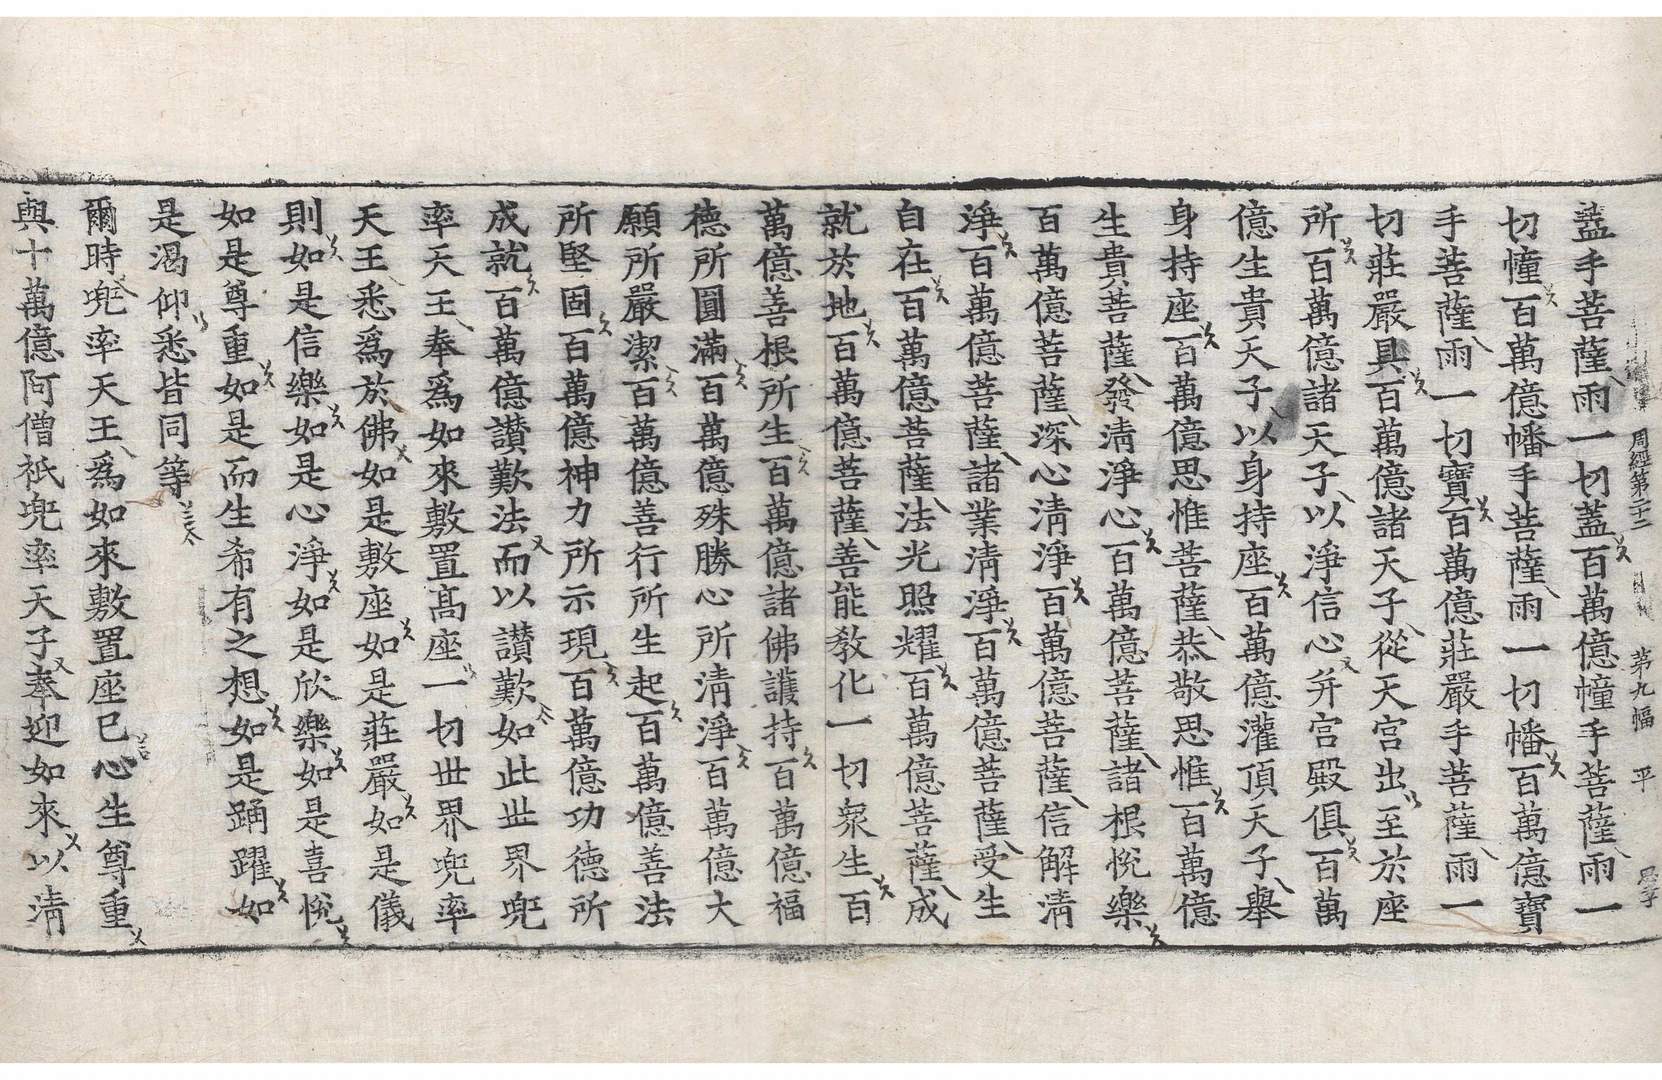 周經第二十二 第九幅 平
蓋手菩薩雨一切蓋百萬億幢手菩薩雨一
切幢百萬億幡手菩薩雨一切幡百萬億寶
手菩薩雨一切寶百萬億莊嚴手菩薩雨一
切莊嚴具百萬億諸天子從天宮出至於座
所百萬億諸天子以淨信心幷宮殿俱百萬
億生貴天子以身持座百萬億灌頂天子舉
身持座百萬億思惟菩薩恭敬思惟百萬億
生貴菩薩發清淨心百萬億菩薩諸根悅樂
百萬億菩薩深心清淨百萬億菩薩信解清
淨百萬億菩薩諸業清淨百萬億菩薩受生
自在百萬億菩薩法光照耀百萬億菩薩成
就於地百萬億菩薩善能教化一切衆生百
萬億善根所生百萬億諸佛護持百萬億福
德所圓滿百萬億殊勝心所清淨百萬億大
願所嚴潔百萬億善行所生起百萬億善法
所堅固百萬億神力所示現百萬億功德所
成就百萬億讚歎法而以讚歎如此世界兜
率天王奉爲如來敷置高座一切世界兜率
天王悉爲於佛如是敷座如是莊嚴如是儀
則如是信樂如是心淨如是欣樂如是喜悅
如是尊重如是而生希有之想如是踊躍如
是渴仰悉皆同等
爾時兜率天王爲如來敷置座已心生尊重
與十萬億阿僧祇兜率天子奉迎如來以清